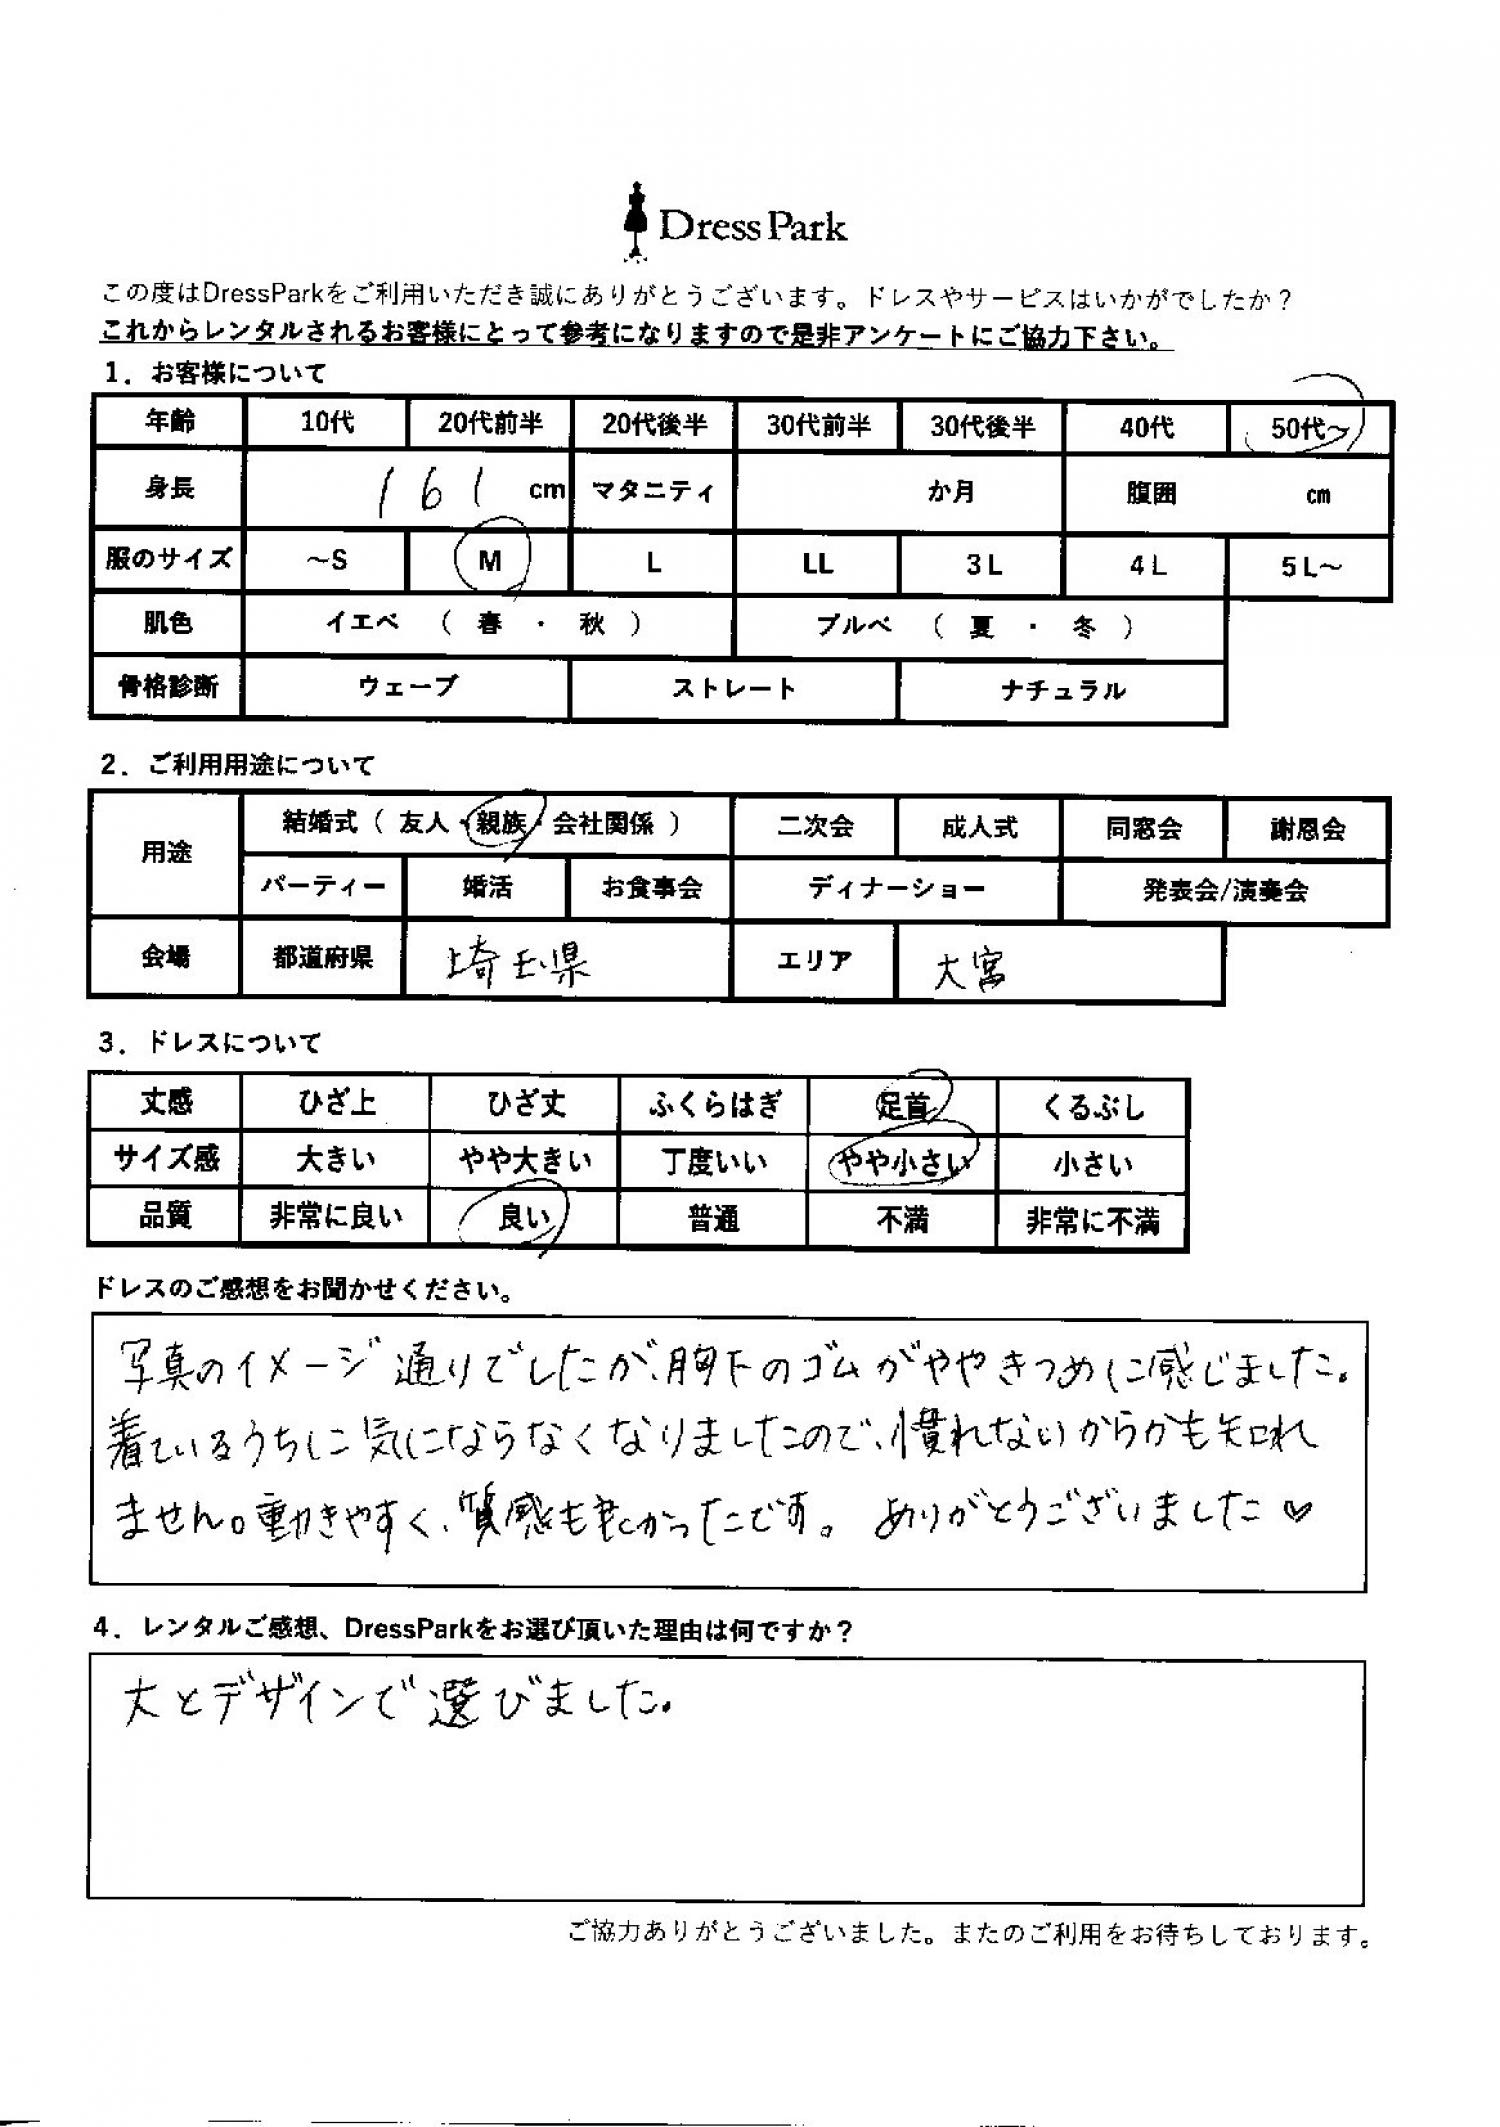 Dress Park
この度はDressParkをご利用いただき誠にありがとうございます。ドレスやサービスはいかがでしたか？
これからレンタルされるお客様にとって参考になりますので是非アンケートにご協力下さい。
1．お客様について
年齢 10代 20代前半 20代後半 30代前半 30代後半 40代 50代～
身長 161 cm マタニティ か月 腹囲 cm
服のサイズ ～S M L LL 3L 4L 5L～
肌色 イエベ （ 春 ・ 秋 ） ブルベ （ 夏 ・ 冬 ）
骨格診断 ウェーブ ストレート ナチュラル
2．ご利用用途について
用途 結婚式（ 友人・親族・会社関係 ） 二次会 成人式 同窓会 謝恩会
パーティー 婚活 お食事会 ディナーショー 発表会/演奏会
会場 都道府県 埼玉県 エリア 大宮
3．ドレスについて
丈感 ひざ上 ひざ丈 ふくらはぎ 足首 くるぶし
サイズ感 大きい やや大きい 丁度いい やや小さい 小さい
品質 非常に良い 良い 普通 不満 非常に不満
ドレスのご感想をお聞かせください。
写真のイメージ通りでしたが、胸下のゴムがややきつめに感じました。
着ているうちに気にならなくなりましたので、慣れないからかも知れ
ません。動きやすく、質感も良かったです。ありがとうございました♡
4．レンタルご感想、DressParkをお選び頂いた理由は何ですか？
丈とデザインで選びました。
ご協力ありがとうございました。またのご利用をお待ちしております。